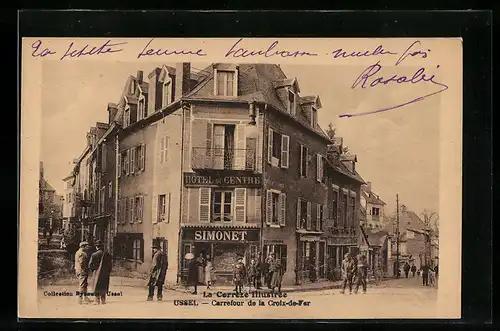 La petite femme
Rosalie
HÔTEL DU CENTRE
SIMONET
Collection Ussel
La Corrèze Illustrée
USSEL — Carrefour de la Croix-de-Fer